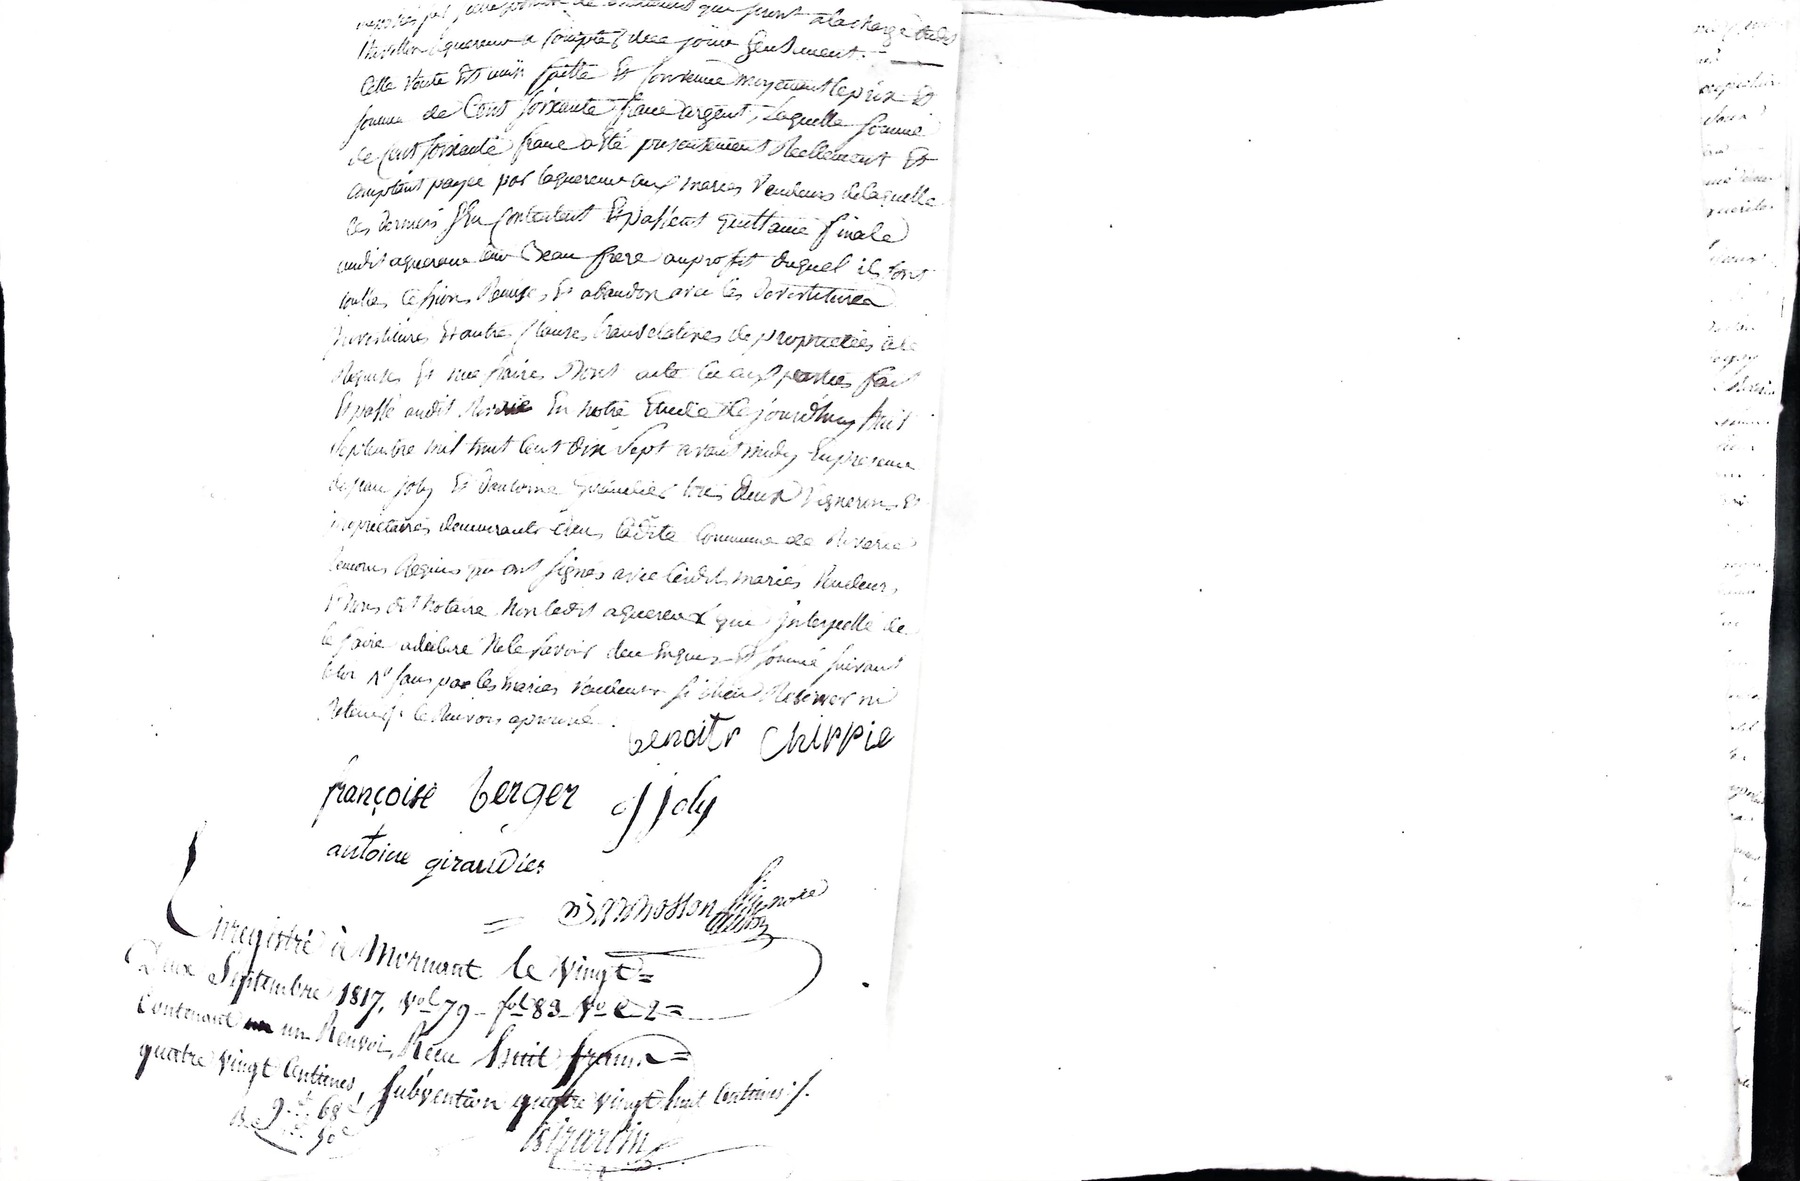 à la charge dudit
aquereur a compter de ce jour seulement.
Cette vente Est ainsi faitte Et Convenue moyenant le prix Et
somme de Cent soixante franc argent, Laquelle somme
de Cent soixante franc a Eté presentement Reellement Et
comptant payée par laquereur aux mariés Vendeurs de laquelle
ces derniers s'En Contentent Et passent quittance finale
audit aquereur leur Beau frere au profit duquel ils font
toutes Cessions Remises Et abandon avec les Devestitures
Investitures Et autres Clauses translatives de proprietées a ce
Requises Et necessaires Dont acte lu aux parties fait
Et passé audit En notre Etude Ce jourdhuy huit
Septembre mil huit Cent dix Sept avant midy En presence
de jean joly Et d'antoine giraudier tous deux Vignerons Et
proprietaires demeurants dans ladite Commune de
temoins Requis qui ont signés avec lesdits mariés Vendeurs
Et Nous dit Notaire Non ledit aquereur qui Interpellé de
le faire a declaré Ne le savoir de ce Enquis Et sommé suivant
la loi sans par les mariés Vendeurs si Rien Reserver ni
Retenir le Renvoi aprouvé.
benoitr Chippie
françoise berger j joly
antoine giraudier
Enregistré à Mornant le vingt=
Deux Septembre 1817, vol 79 - fol 83 Vo C 2=
Contenant un Renvoi, Reçu huit francs=
quatre vingt Centimes, subvention quatre vingt huit Centimes ./.
9. 68